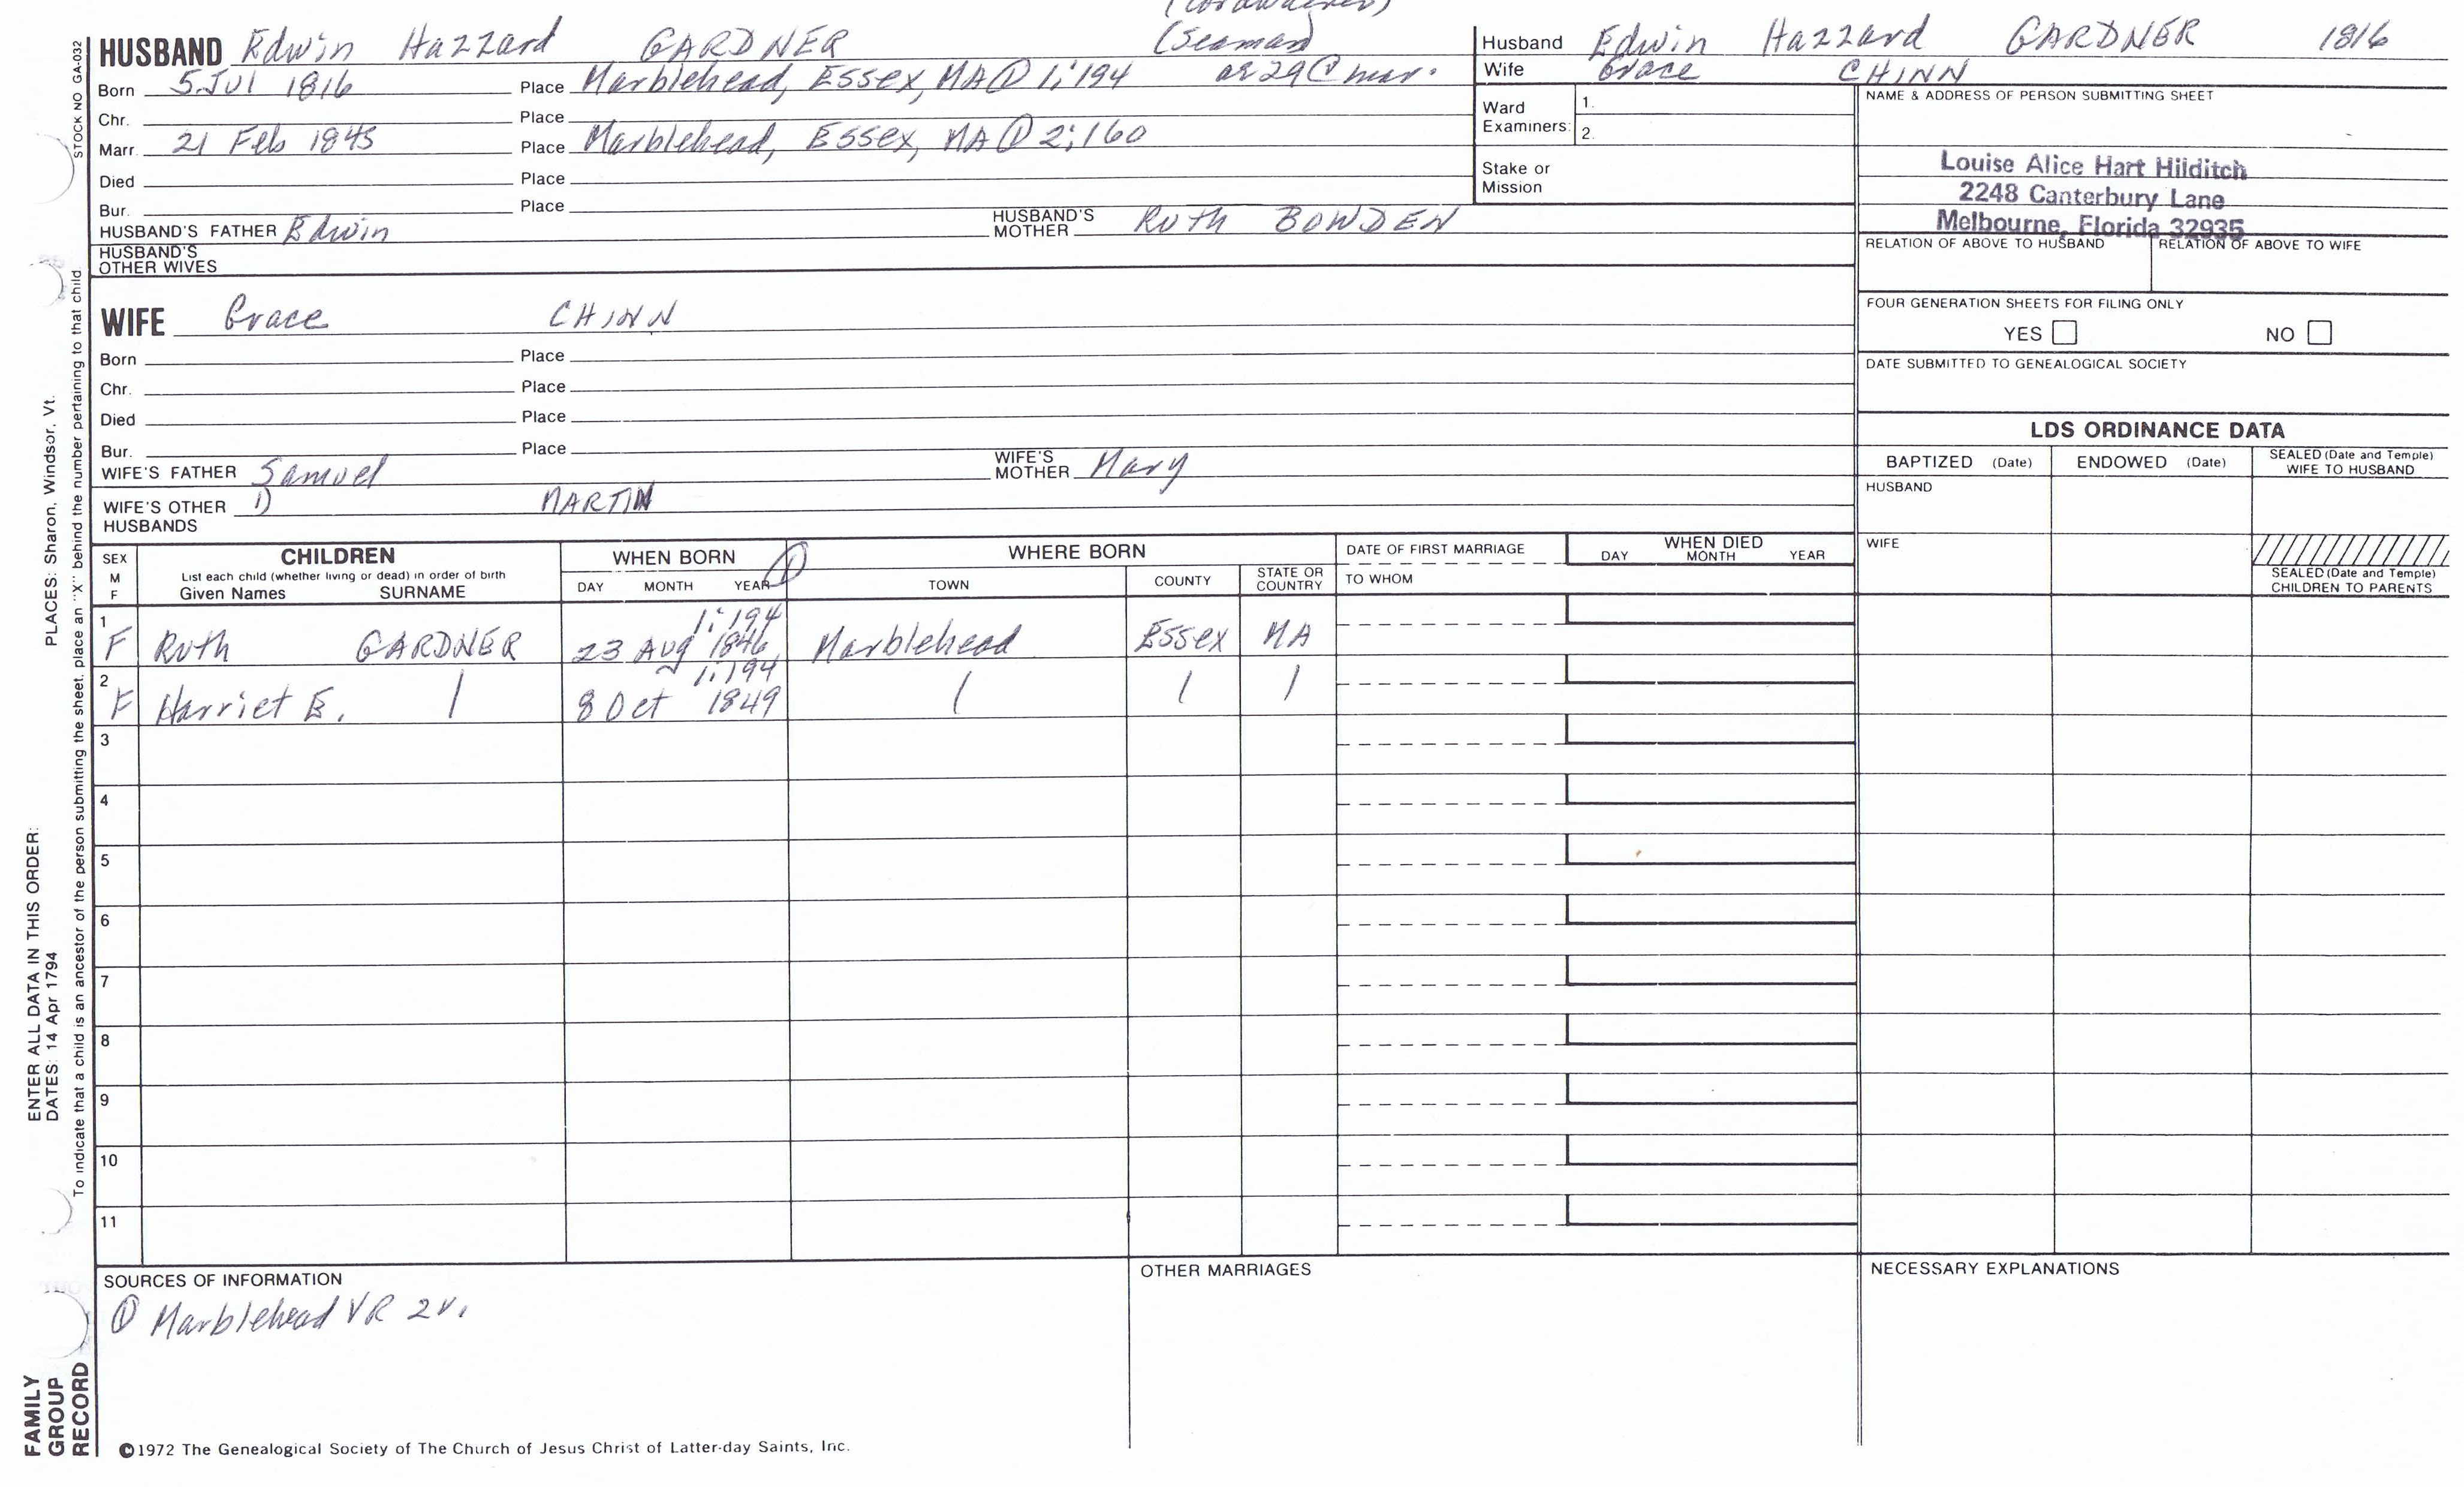 (Cordwainer)
HUSBAND Edwin Hazzard GARDNER (Seaman)
Born 5 Jul 1816 Place Marblehead, Essex, MA ① 1:194 ae 29 @ mar.
Chr. Place
Marr. 21 Feb 1845 Place Marblehead, Essex, MA ① 2:160
Died Place
Bur. Place
HUSBAND'S FATHER Edwin HUSBAND'S MOTHER Ruth BOWDEN
HUSBAND'S OTHER WIVES
WIFE Grace CHINN
Born Place
Chr. Place
Died Place
Bur. Place
WIFE'S FATHER Samuel WIFE'S MOTHER Mary
WIFE'S OTHER HUSBANDS 1) MARTIN
Husband Edwin Hazzard GARDNER 1816
Wife Grace CHINN
Ward Examiners: 1.
2.
Stake or Mission
NAME & ADDRESS OF PERSON SUBMITTING SHEET
Louise Alice Hart Hilditch
2248 Canterbury Lane
Melbourne, Florida 32935
RELATION OF ABOVE TO HUSBAND RELATION OF ABOVE TO WIFE
FOUR GENERATION SHEETS FOR FILING ONLY
YES NO
DATE SUBMITTED TO GENEALOGICAL SOCIETY
LDS ORDINANCE DATA
BAPTIZED (Date) ENDOWED (Date) SEALED (Date and Temple) WIFE TO HUSBAND
HUSBAND
WIFE
SEALED (Date and Temple) CHILDREN TO PARENTS
SEX M F
CHILDREN
List each child (whether living or dead) in order of birth
Given Names SURNAME
WHEN BORN ①
DAY MONTH YEAR
WHERE BORN
TOWN COUNTY STATE OR COUNTRY
DATE OF FIRST MARRIAGE
TO WHOM
WHEN DIED
DAY MONTH YEAR
1:194
1 F Ruth GARDNER 23 Aug 1846 Marblehead Essex MA
1:194
2 F Harriet E. | 8 Oct 1849 | | |
3
4
5
6
7
8
9
10
11
SOURCES OF INFORMATION
① Marblehead VR 2v.
OTHER MARRIAGES
NECESSARY EXPLANATIONS
©1972 The Genealogical Society of The Church of Jesus Christ of Latter-day Saints, Inc.
STOCK NO GA-032
To indicate that a child is an ancestor of the person submitting the sheet, place an "X" behind the number pertaining to that child
ENTER ALL DATA IN THIS ORDER:
DATES: 14 Apr 1794 PLACES: Sharon, Windsor, Vt.
FAMILY
GROUP
RECORD